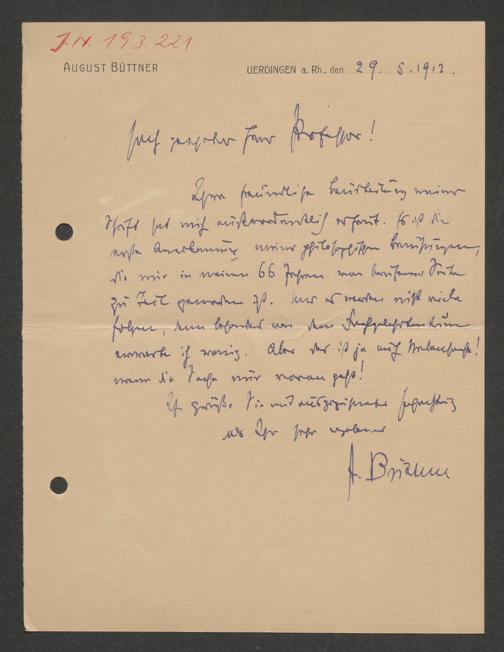 J.N. 193.221
AUGUST BÜTTNER
UERDINGEN a. Rh., den 29.5.1912.
Hoch geehrter Herr Professor!
Ihre freundliche Beurteilung meiner
Schrift hat mich außerordentlich erfreut. Es ist die
erste Anerkennung meiner philosophischen Bemühungen,
die mir in meinen 66 Jahren von berufener Seite
zu Teil geworden ist. Und es werden nicht viele
folgen, denn besonders von dem Fachgelehrtentum
erwarte ich wenig. Aber das ist ja auch Nebensache!
wenn die Sache nur voran geht!
Ich grüße Sie mit ausgezeichneter Hochachtung
als Ihr sehr ergebener
A. Büttner